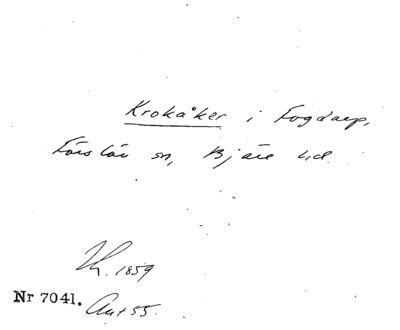 Krokåker i Fogdarp,
Förslöv sn, Bjäre hd.
Th. 1859
Nr 7041. Aut 55.